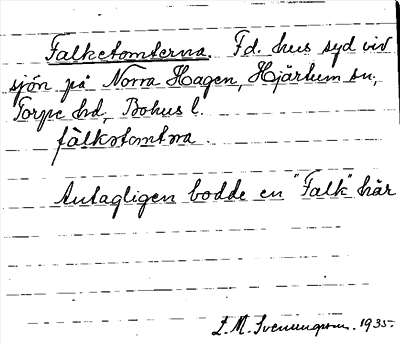 Falketomterna. Fd. hus syd vid
sjön på Norra Hagen, Hjärtum sn,
Torpe hd, Bohus l.
fàlkotomtṇa.
Antagligen bodde en "Falk" här
L. M. Svenungsson. 1935.